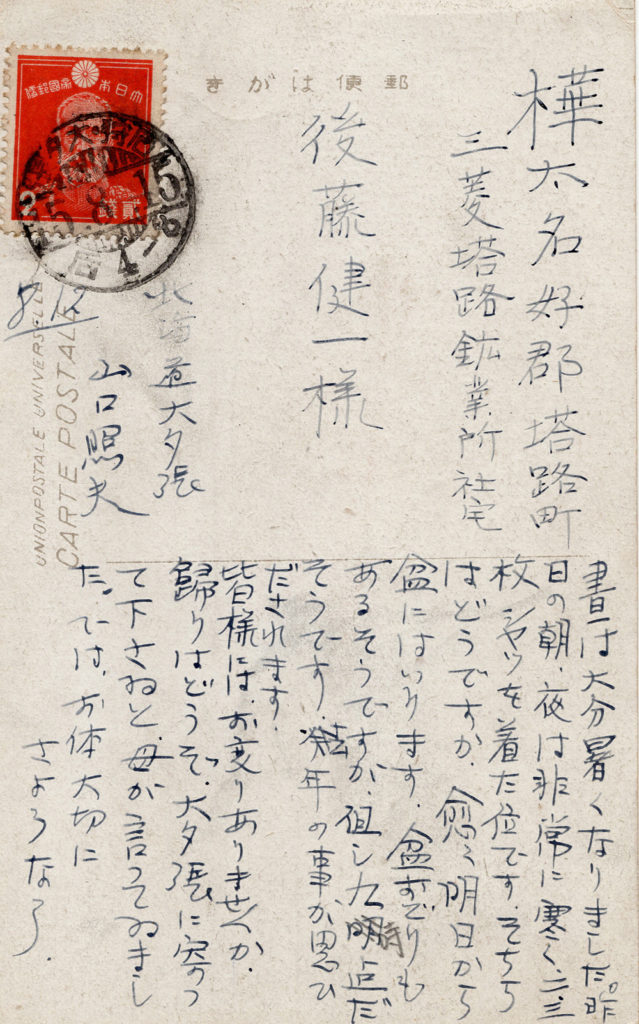 郵便はがき
大日本帝國郵便
貳錢
樺太名好郡塔路町
三菱塔路鉱業所社宅
後藤健一様
北海道大夕張
山口照夫
8.12
UNION POSTALE UNIVERSELLE
CARTE POSTALE
晝は大分暑くなりました。昨
日の朝、夜は非常に寒く、二、三
枚シャツを着た位です。そちら
はどうですか、愈々明日から
盆にはいります、盆おどりも
あるそうですが、但し九時迄だ
そうです、去年の事が思ひ
だされます、
皆様にはお変りありませんか、
歸りはどうぞ、大夕張に寄っ
て下さねと、母が言ってゐまし
た。では、お体大切に
さようなら、